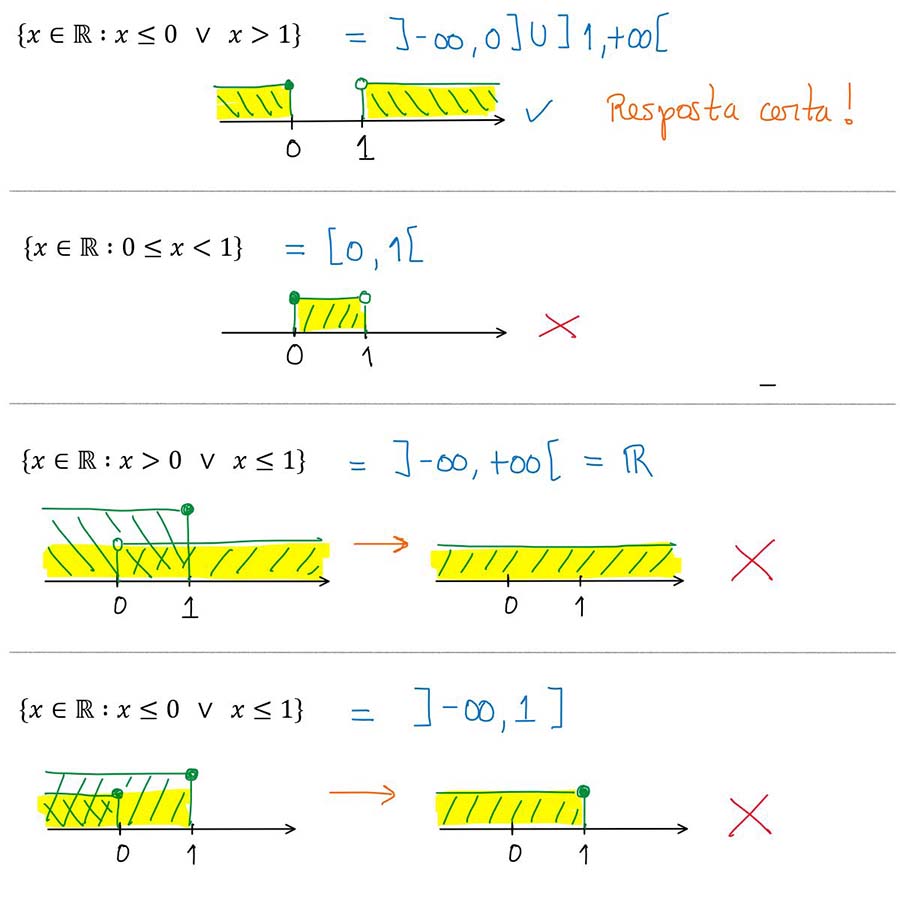 {x ∈ ℝ : x ≤ 0 ∨ x > 1} = ]-∞, 0] ∪ ]1, +∞[
0 1 ✓ Resposta certa!
{x ∈ ℝ : 0 ≤ x < 1} = [0, 1[
0 1
{x ∈ ℝ : x > 0 ∨ x ≤ 1} = ]-∞, +∞[ = ℝ
0 1 0 1
{x ∈ ℝ : x ≤ 0 ∨ x ≤ 1} = ]-∞, 1]
0 1 0 1